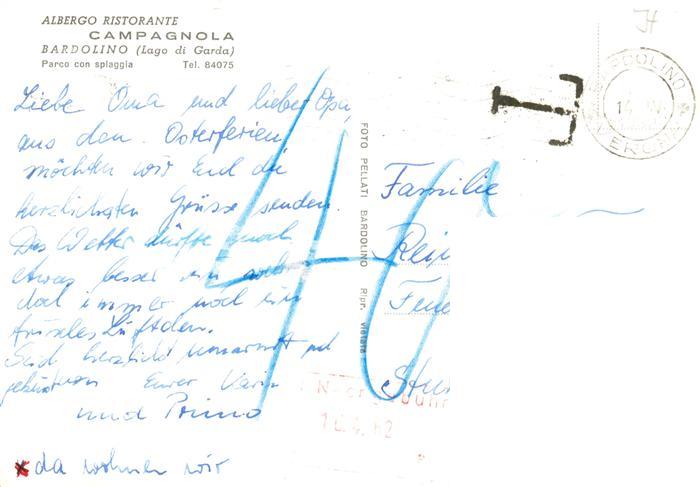 ALBERGO RISTORANTE
CAMPAGNOLA
BARDOLINO (Lago di Garda)
Parco con spiaggia Tel. 84075
Liebe Oma und lieber Opa,
aus den Osterferien
möchten wir Euch die
herzlichsten Grüsse senden.
Das Wetter dürfte noch
etwas besser
doch immer noch ein
frisches Lüftchen.
Seid herzlichst umarmt und
Eurer
und Primo
da wohnen wir
FOTO PELLATI BARDOLINO Ripr. vietata
40
T
Familie
BARDOLINO
VERONA
Nachgebühr
10.4.62